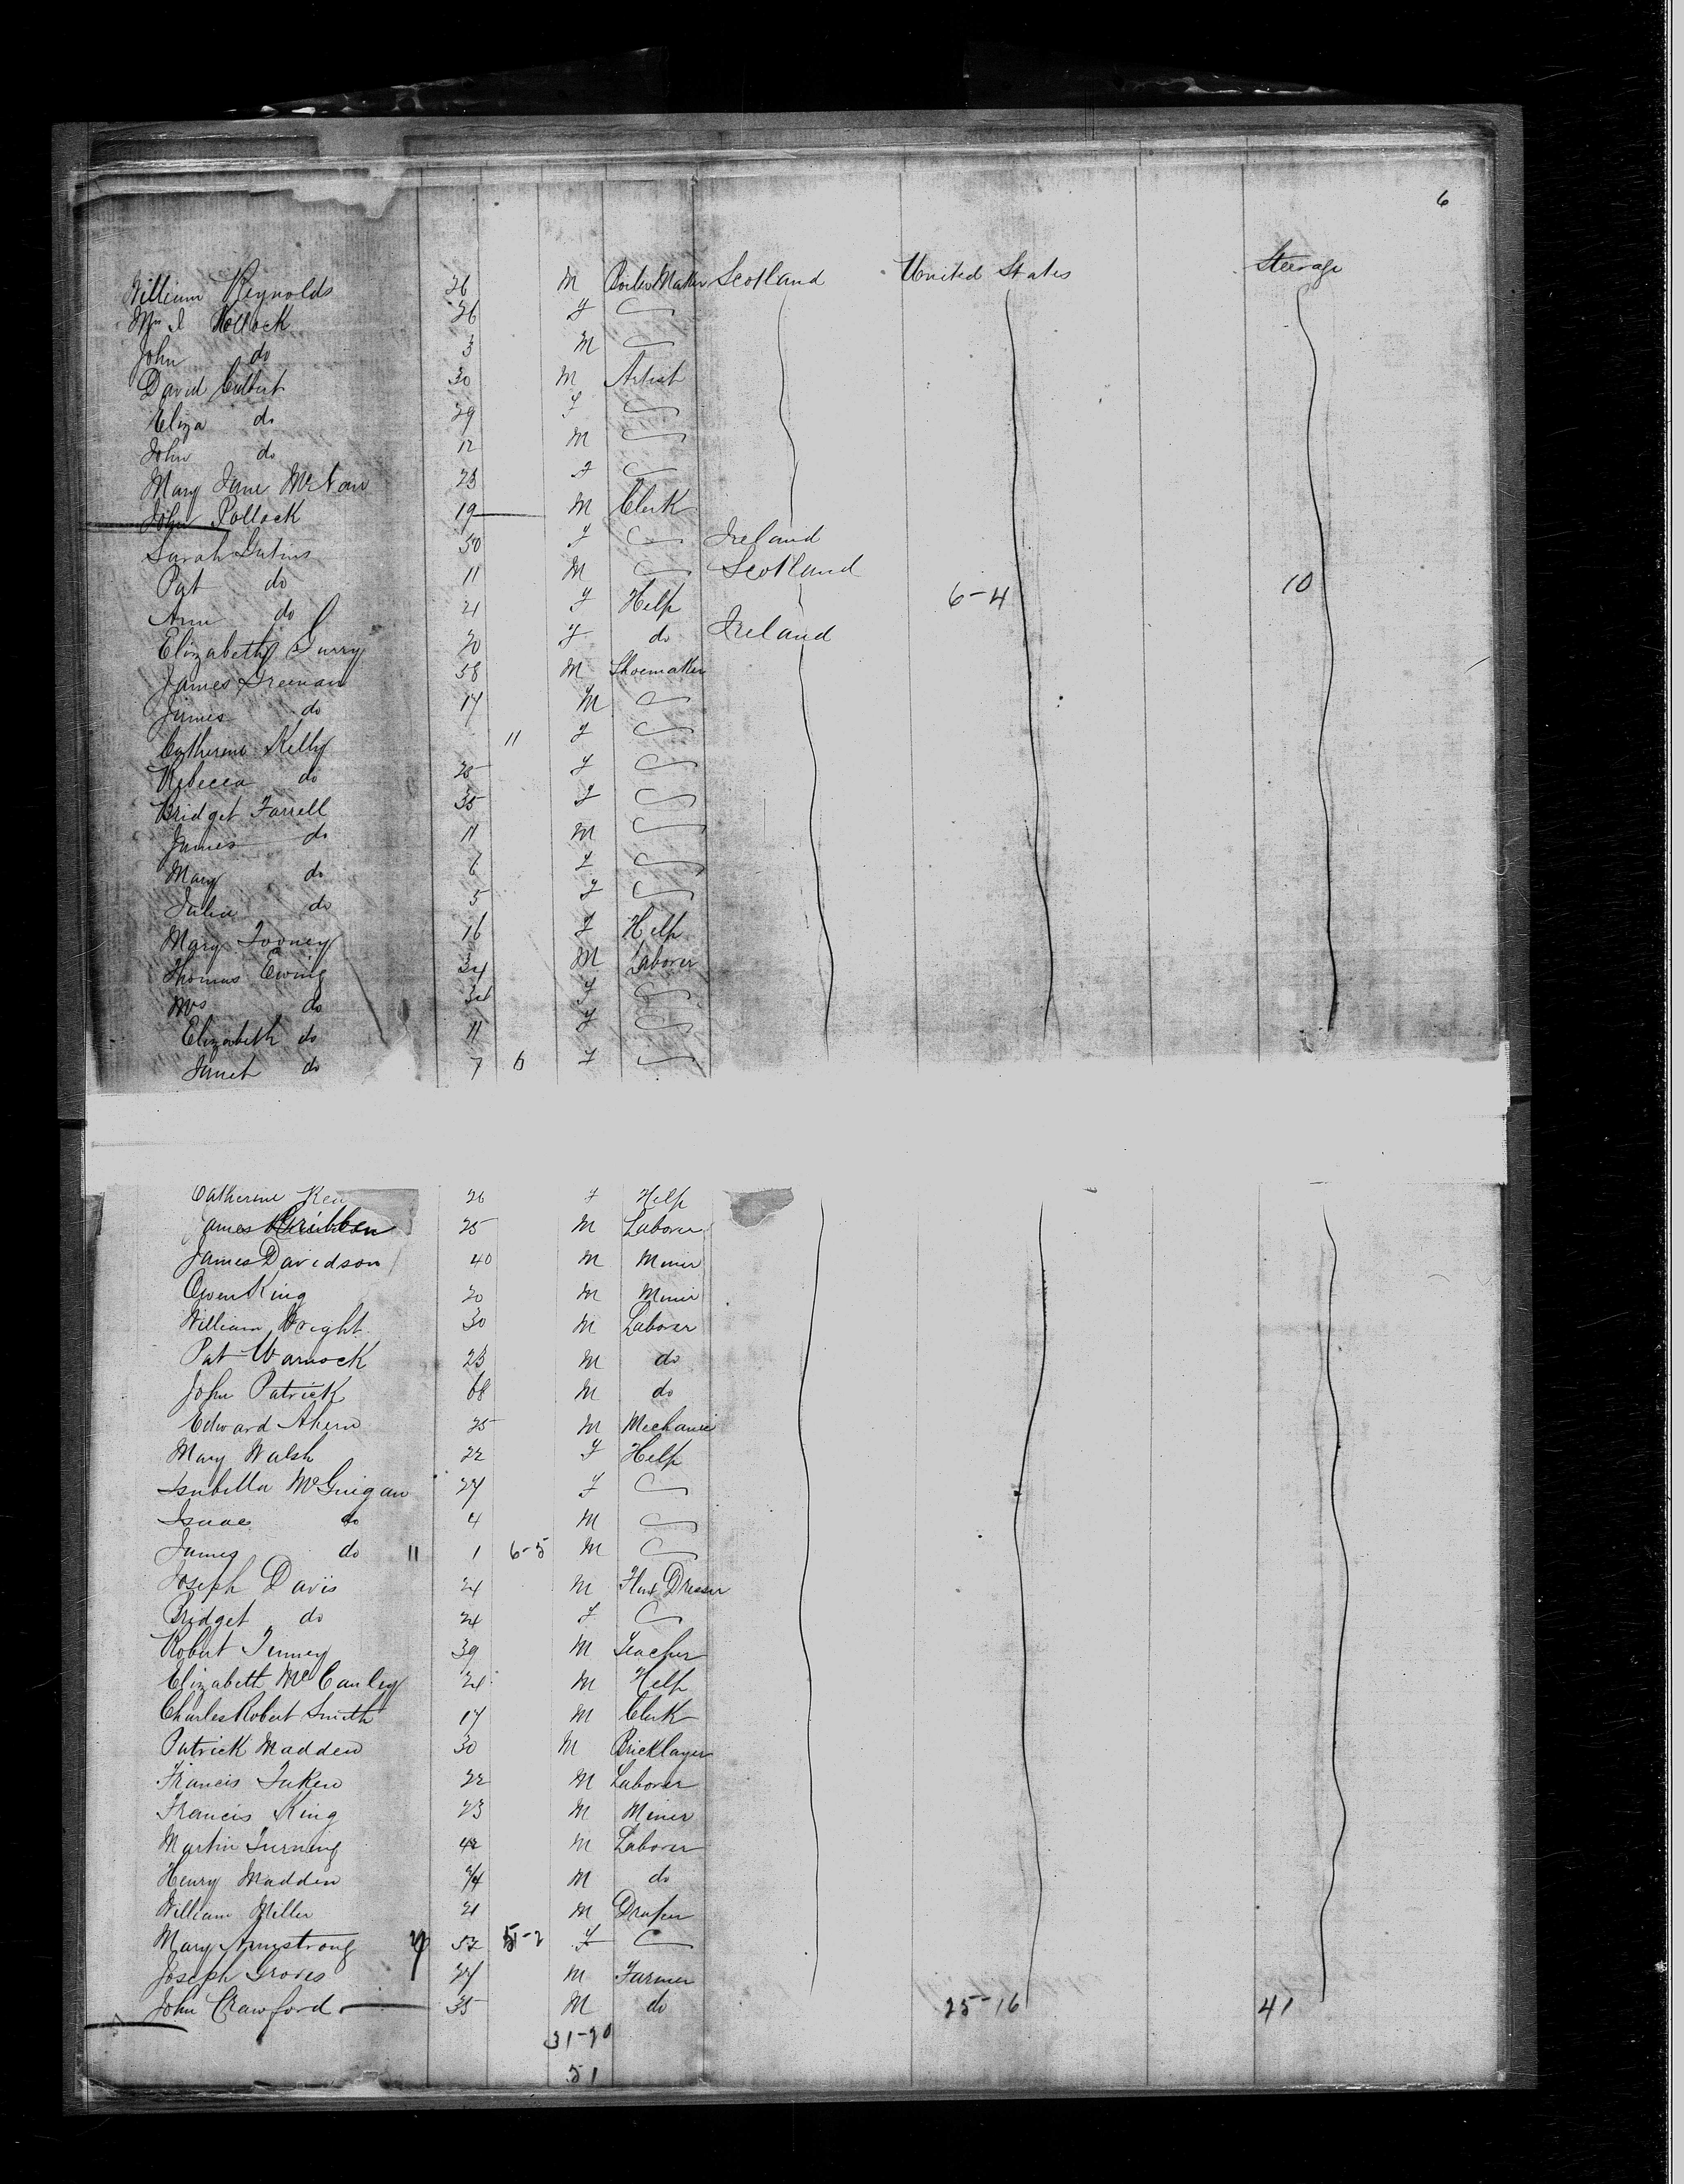 6
William Reynolds 26 M Boiler Maker Scotland United States Steerage
Mrs J Pollock 26 F
John do 3 M
David Cuthbert 30 M Artist
Eliza do 29 F
John do 12 M
Mary Jane McNair 23 F
John Pollock 19 M Clerk
Sarah 50 F Ireland
Pat do 11 M Scotland
Ann do 21 F Help 6-4 10
Elizabeth Gurry 20 F do Ireland
James Greenan 58 M Shoemaker
James do 17 M
Catherine Kelly 11 F
Rebecca do 25 F
Bridget Farrell 35 F
James do 11 M
Mary do 6 F
Julia do 5 F
Mary Toomey 16 F Help
Thomas Ewing 34 M Laborer
Mrs do 34 F
Elizabeth do 11 F
Janet do 7 F
Catherine 26 F Help
James 25 M Laborer
James Davidson 40 M Miner
Owen King 20 M Miner
William Wright 30 M Laborer
Pat Warnock 23 M do
John Patrick 68 M do
Edward Ahern 25 M Mechanic
Mary Walsh 22 F Help
Isabella McGuigan 27 F
Isaac do 4 M
James do 11 1 6-5 M
Joseph Davis 24 M Flax Dresser
Bridget do 24 F
Robert Tenney 39 M Teacher
Elizabeth McCauley 24 M Help
Charles Robert Smith 17 M Clerk
Patrick Madden 30 M Bricklayer
Francis 22 M Laborer
Francis King 23 M Miner
Martin 42 M Laborer
Henry Madden M do
William Miller 21 M Draper
Mary Armstrong 52 5-2 F
Joseph Groves 27 M Farmer
John Crawford 35 M do 25-16 41
31-20
51